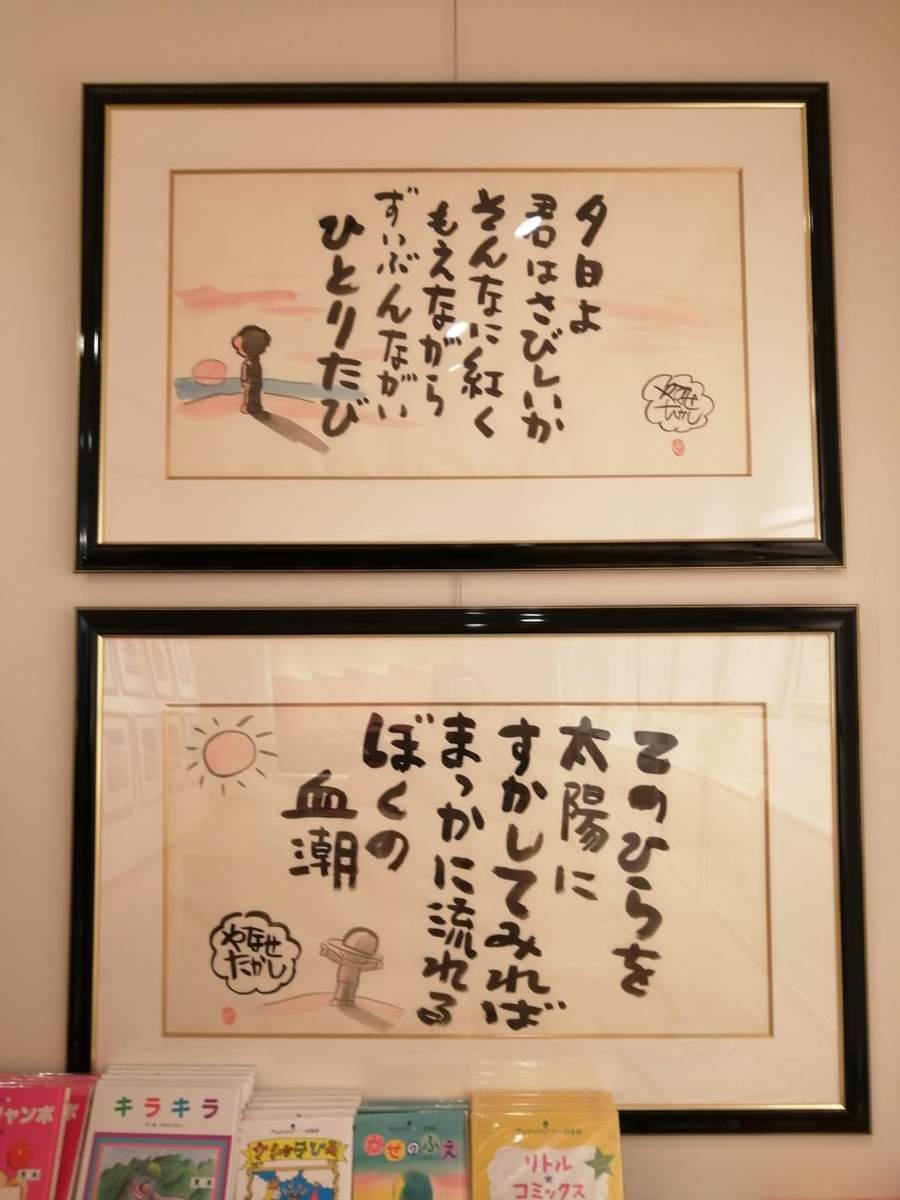 夕日よ
君はさびしいか
そんなに紅く
もえながら
ずいぶんながい
ひとりたび
やなせ
たかし
てのひらを
太陽に
すかしてみれば
まっかに流れる
ぼくの
血潮
やなせ
たかし
ャンボ
キラキラ
かぜのふえ
リトル
コミックス